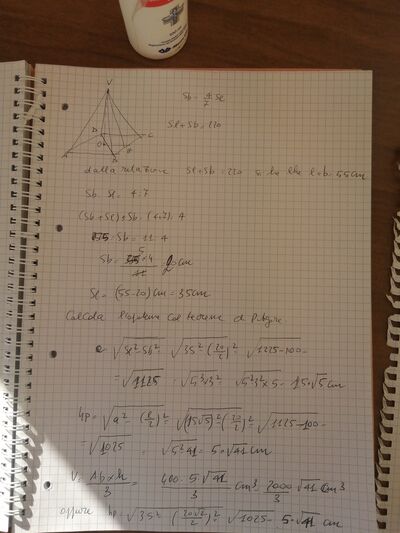 V
Sb = 4/7 Sl
Sl + Sb = 220
D C
O H
A B
dalla relazione Sl + Sb = 220 si ha che l+b = 55 cm
Sb : Sl = 4 : 7
(Sb + Sl) : Sb = (4+7) : 4
55 : Sb = 11 : 4
Sb = 55·4/11 = 20 cm
Sl = (55-20) cm = 35 cm
Calcola l'apotema col teorema di Pitagora
√Sl² - Sb² = √35² - (20/2)² = √1225-100 =
= √1125 = √5³·3² = √5²·3²×5 = 15·√5 cm
hp = √a² - (l/2)² = √(15√5)² - (20/2)² = √1125-100 =
= √1025 = √5²·41 = 5·√41 cm
V = Ab×h/3 = 400·5√41/3 cm³ = 2000/3 √41 cm³
oppure hp = √35² - (20√2/2)² = √1025 = 5·√41 cm